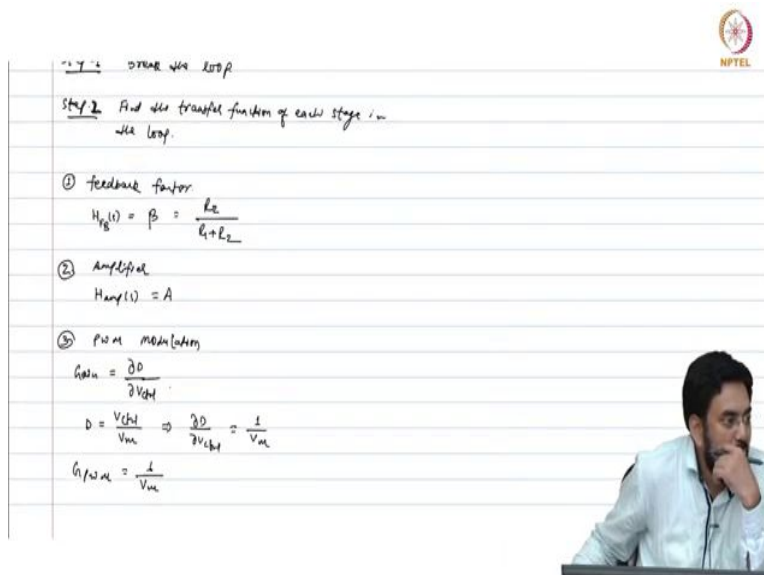 NPTEL
Step-1 Break the loop
Step-2 Find the transfer function of each stage in
the loop.
① feedback factor.
H_FB(s) = β = R2 / (R1+R2)
② Amplifier
Hamp(s) = A
③ PWM modulation
Gain = ∂D / ∂Vctrl
D = Vctrl / VM ⇒ ∂D / ∂Vctrl = 1 / VM
GPWM = 1 / VM